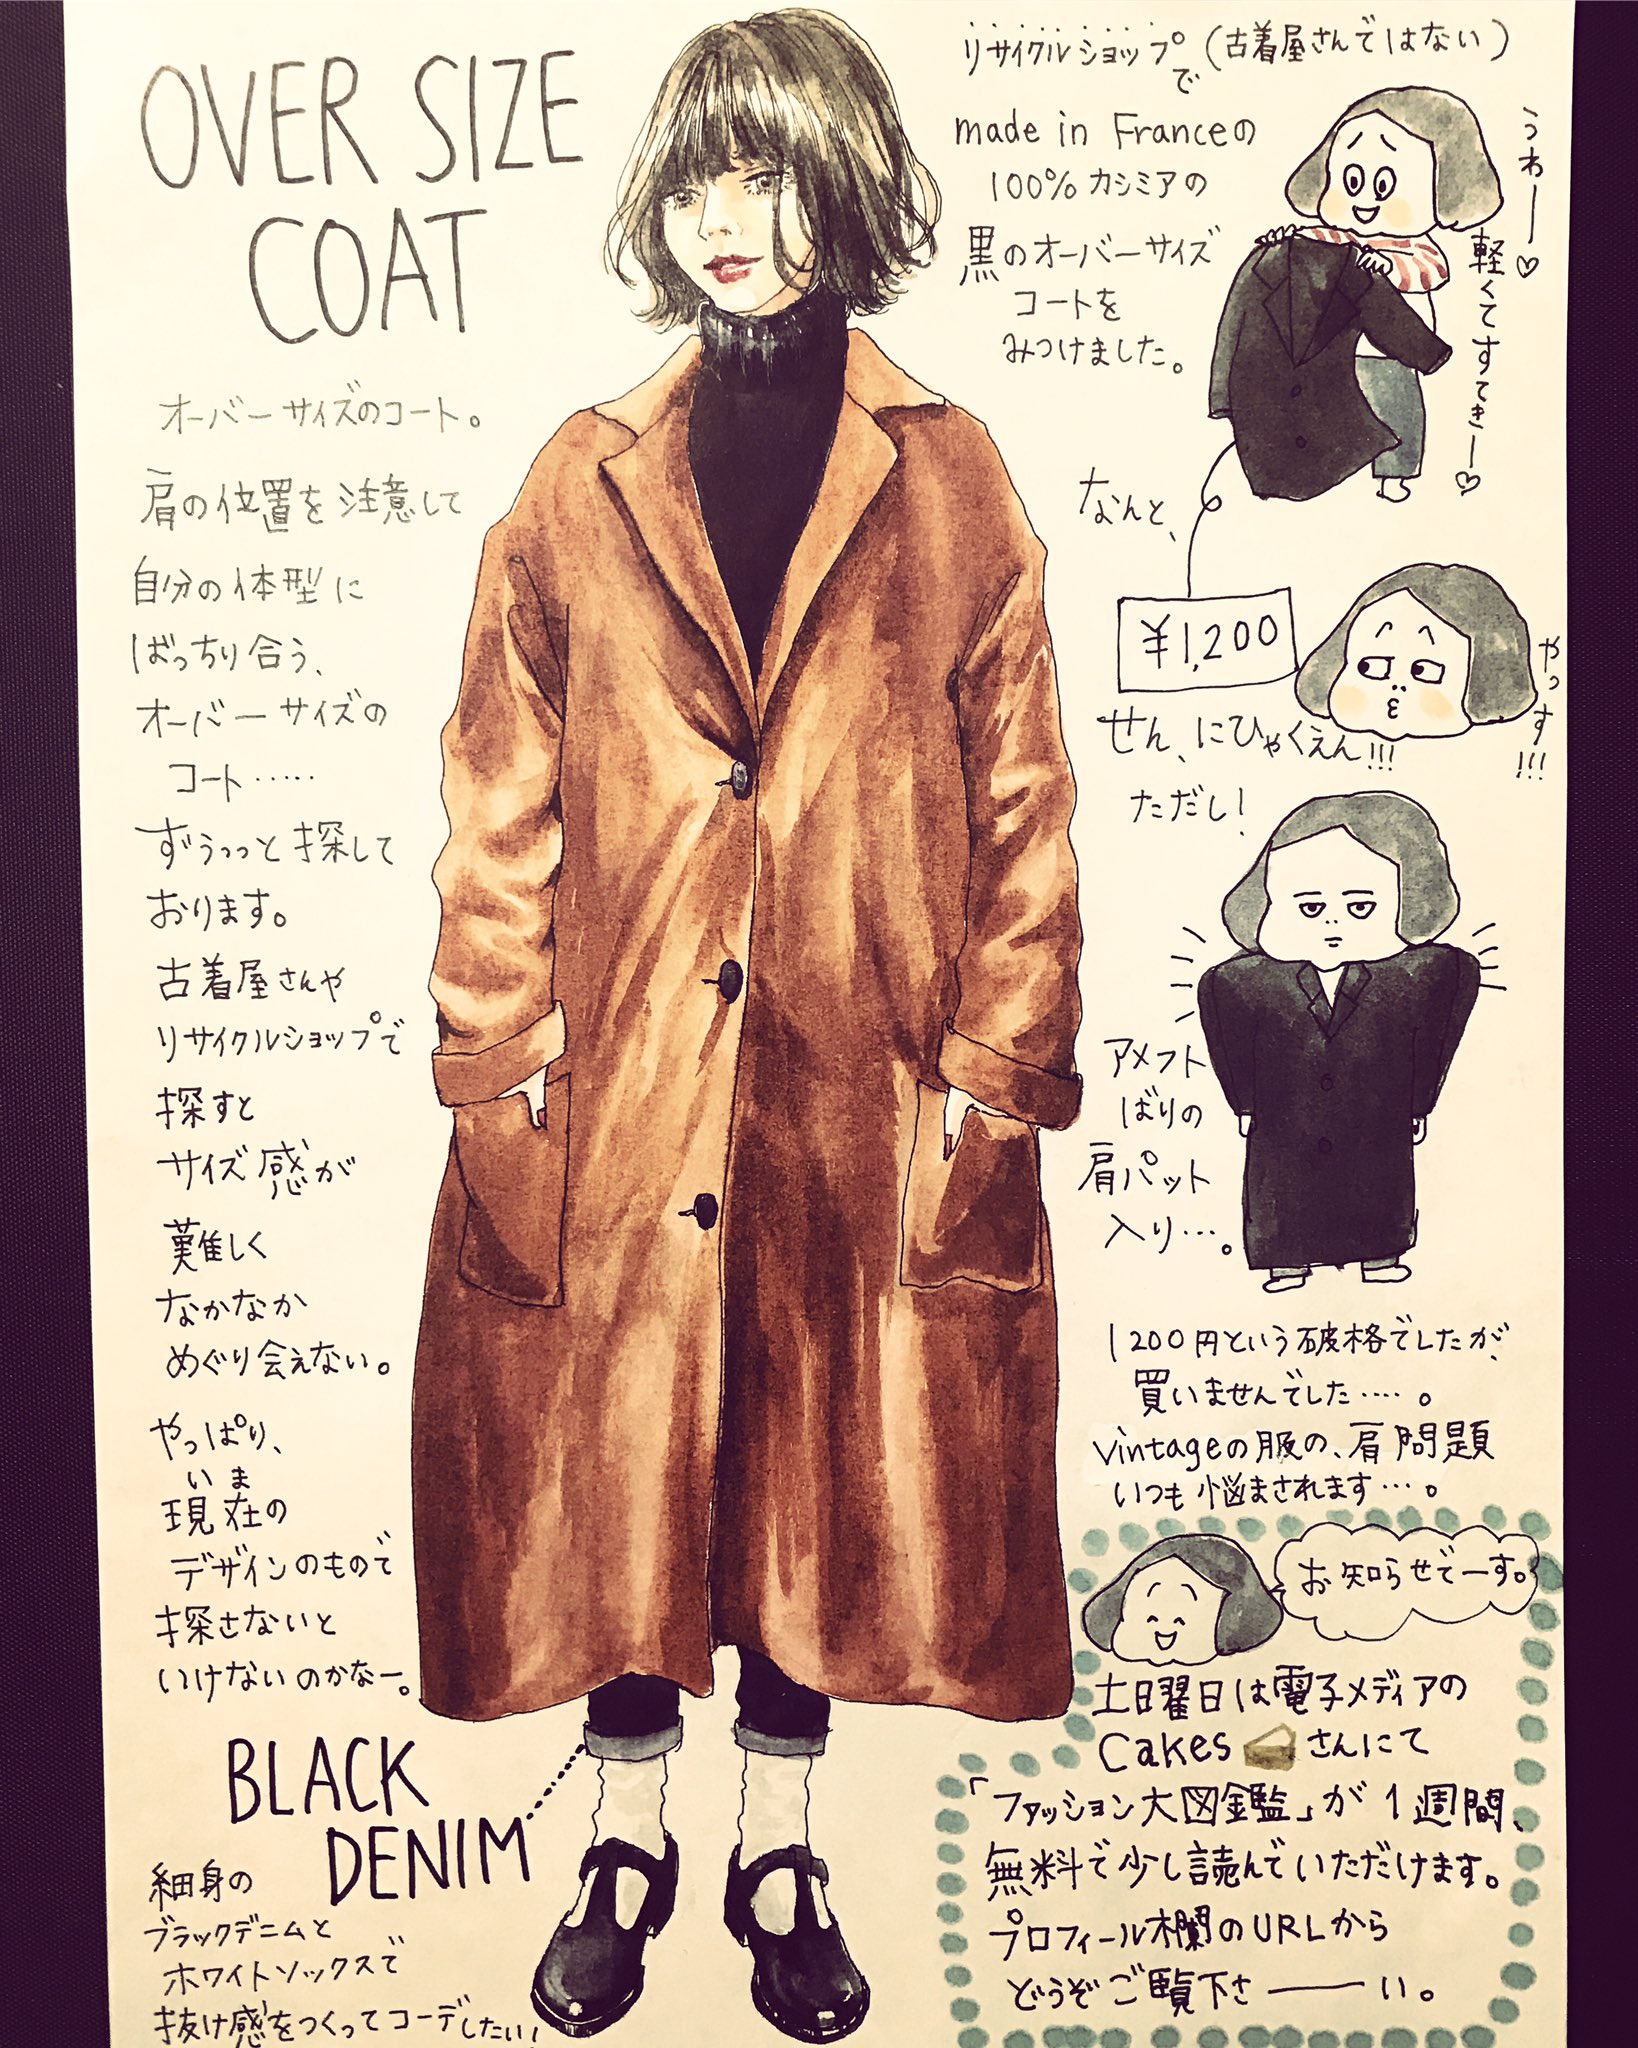 OVER SIZE
COAT
オーバーサイズのコート。
肩の位置を注意して
自分の体型に
ばっちり合う、
オーバーサイズの
コート……
ずうっっと探して
おります。
古着屋さんや
リサイクルショップで
探すと
サイズ感が
難しく
なかなか
めぐり会えない。
やっぱり、
いま
現在の
デザインのもので
探さないと
いけないのかなー。
BLACK
DENIM
細身の
ブラックデニムと
ホワイトソックスで
抜け感をつくってコーデしたい!
リサイクルショップで(古着屋さんではない)
made in Franceの
100%カシミアの
黒のオーバーサイズ
コートを
みつけました。
うわー♡
軽くてすてきー♡
なんと、
¥1,200
やっす!!!
せん、にひゃくえん!!!
ただし!
アメフト
ばりの
肩パット
入り…。
1200円という破格でしたが、
買いませんでした…..。
vintageの服の、肩問題
いつも悩まされます…。
お知らせでーす。
土日曜日は電子メディアの
Cakesさんにて
「ファッション大図鑑」が1週間、
無料で少し読んでいただけます。
プロフィール欄のURLから
どうぞご覧下さ――い。